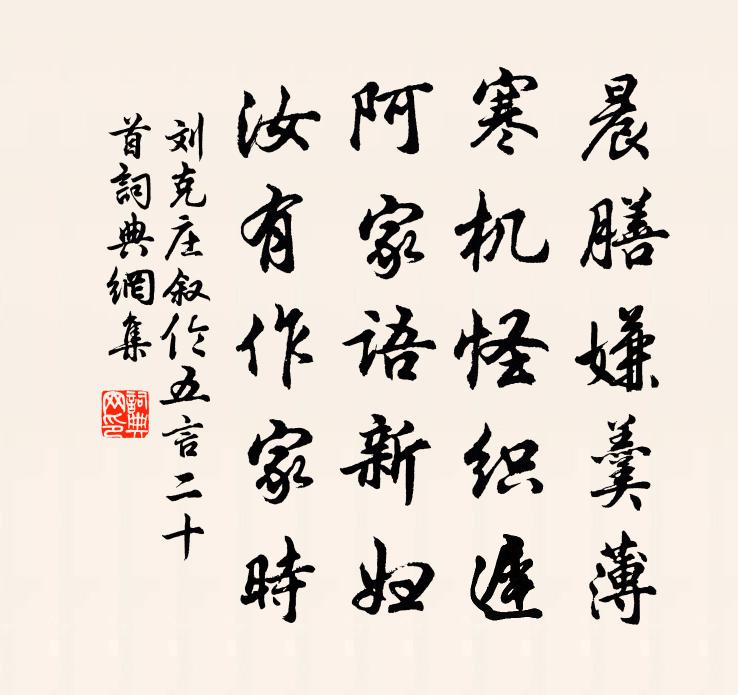 晨膳嫌羹薄
寒机怪织遲
阿家语新妇
汝有作家時
刘克庄叙伦五言二十
首詞典網集
詞典網印